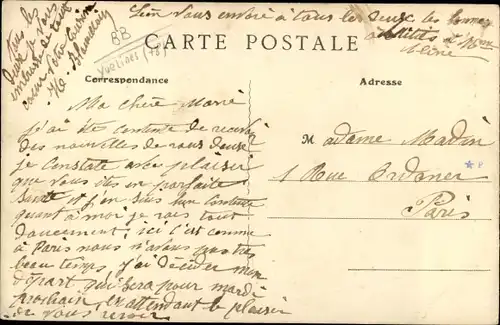 Léon vous envoie à tous les deux les bonnes
amitiés et
tous les
deux je vous
embrasse de tout
coeur Votre Cousine
H.
BB
YVELINES (78)
CARTE POSTALE
Correspondance
Adresse
Ma chère Marie
j'ai été contente de recevoir
des nouvelles de vous deux
je constate avec plaisir
que vous êtes en parfaite
santé et j'en suis bien contente
quant à moi je vais tout
doucement, ici c'est comme
à Paris nous n'avons pas très
beau temps, j'ai décidée mon
départ qui sera pour mardi
prochain, en attendant le plaisir
de vous revoir
Madame Madin
1 Rue Ordener
Paris